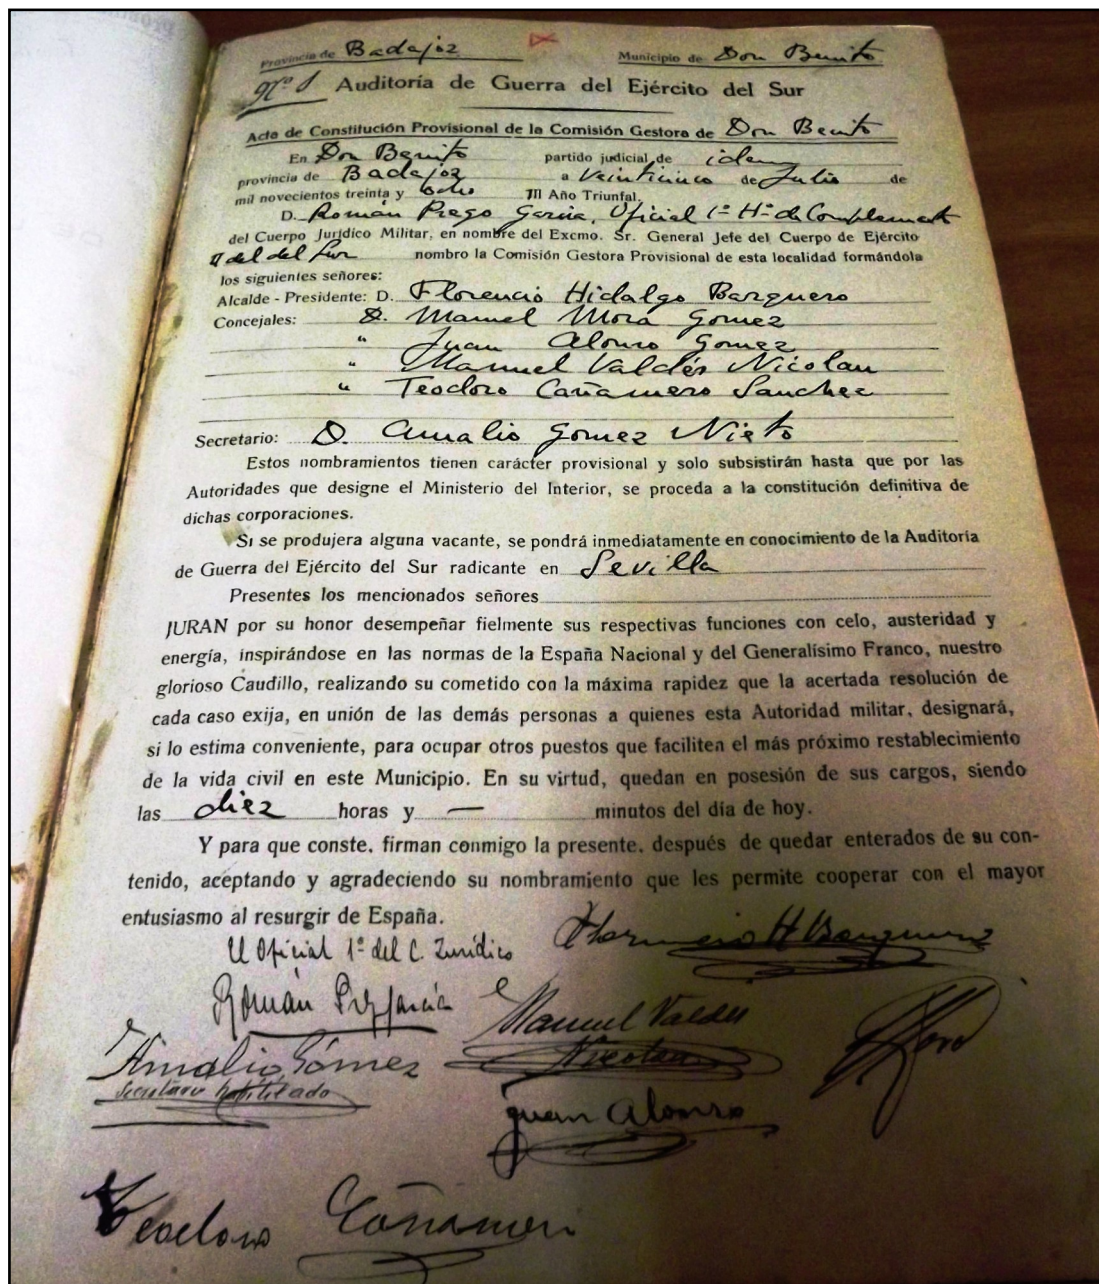 Provincia de Badajoz Municipio de Don Benito
Nº 1 Auditoría de Guerra del Ejército del Sur
Acta de Constitución Provisional de la Comisión Gestora de Don Benito
En Don Benito partido judicial de idem
provincia de Badajoz a veinticinco de Julio de
mil novecientos treinta y ocho III Año Triunfal.
D. Román Prego García, Oficial 1º Hº de Complemento
del Cuerpo Jurídico Militar, en nombre del Excmo. Sr. General Jefe del Cuerpo de Ejército
del del Sur nombro la Comisión Gestora Provisional de esta localidad formándola
los siguientes señores:
Alcalde - Presidente: D. Florencio Hidalgo Barquero
Concejales: D. Manuel Mora Gomez
" Juan Alonso Gomez
" Manuel Valdés Nicolau
" Teodoro Cañamero Sanchez
Secretario: D. Amalio Gomez Nieto
Estos nombramientos tienen carácter provisional y solo subsistirán hasta que por las
Autoridades que designe el Ministerio del Interior, se proceda a la constitución definitiva de
dichas corporaciones.
Si se produjera alguna vacante, se pondrá inmediatamente en conocimiento de la Auditoría
de Guerra del Ejército del Sur radicante en Sevilla
Presentes los mencionados señores
JURAN por su honor desempeñar fielmente sus respectivas funciones con celo, austeridad y
energía, inspirándose en las normas de la España Nacional y del Generalísimo Franco, nuestro
glorioso Caudillo, realizando su cometido con la máxima rapidez que la acertada resolución de
cada caso exija, en unión de las demás personas a quienes esta Autoridad militar, designará,
si lo estima conveniente, para ocupar otros puestos que faciliten el más próximo restablecimiento
de la vida civil en este Municipio. En su virtud, quedan en posesión de sus cargos, siendo
las diez horas y — minutos del día de hoy.
Y para que conste, firman conmigo la presente, después de quedar enterados de su con-
tenido, aceptando y agradeciendo su nombramiento que les permite cooperar con el mayor
entusiasmo al resurgir de España.
El Oficial 1º del C. Jurídico Florencio H Barquero
Román García
Manuel Valdés
Nicolau
Mora
Amalio Gómez
Secretario habilitado
Juan Alonso
Teodoro Cañamero